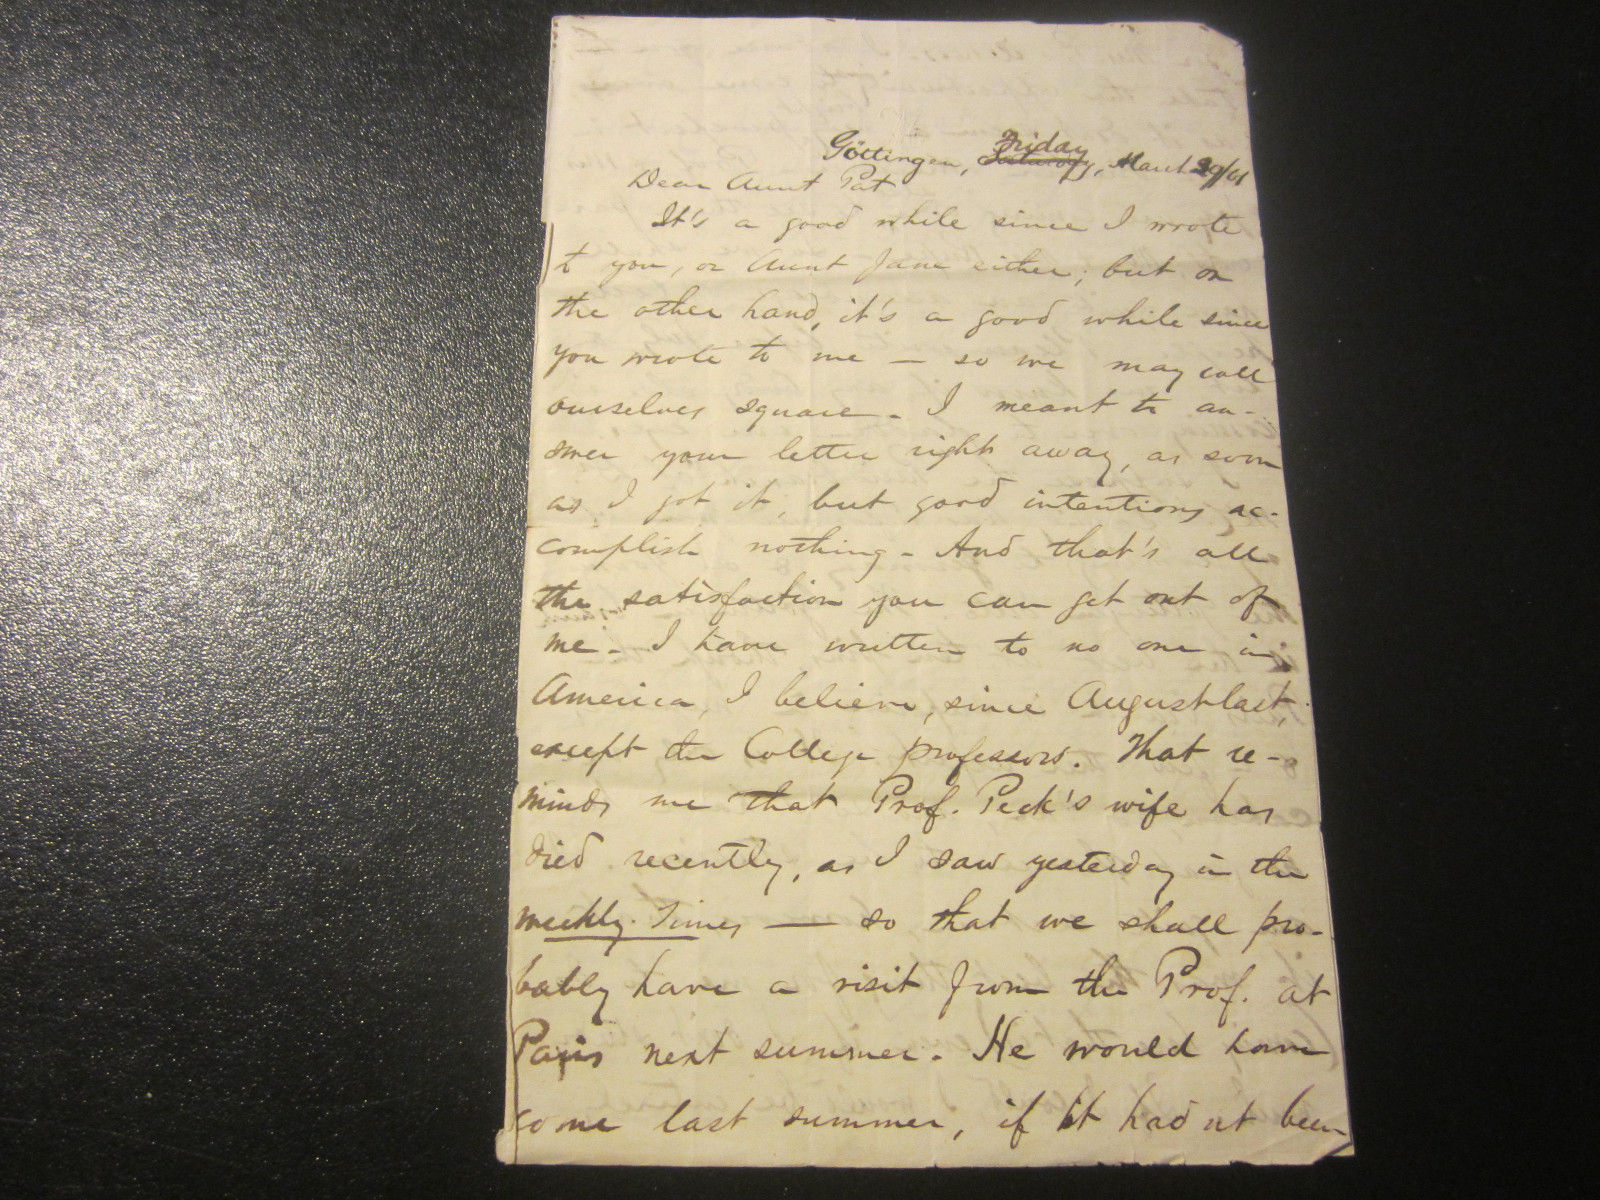 Friday
Göttingen, Saturday, March 29/61
Dear Aunt Pat
It's a good while since I wrote
to you, or Aunt Jane either; but on
the other hand, it's a good while since
you wrote to me — so we may call
ourselves square. I meant to an-
swer your letter right away, as soon
as I got it, but good intentions ac-
complish nothing. And that's all
the satisfaction you can get out of
me. I have written to no one in
America, I believe, since August last,
except the College professors. That re-
minds me that Prof. Peck's wife has
died recently, as I saw yesterday in the
weekly Times — so that we shall pro-
bably have a visit from the Prof. at
Paris next summer. He would have
come last summer, if it had nt been